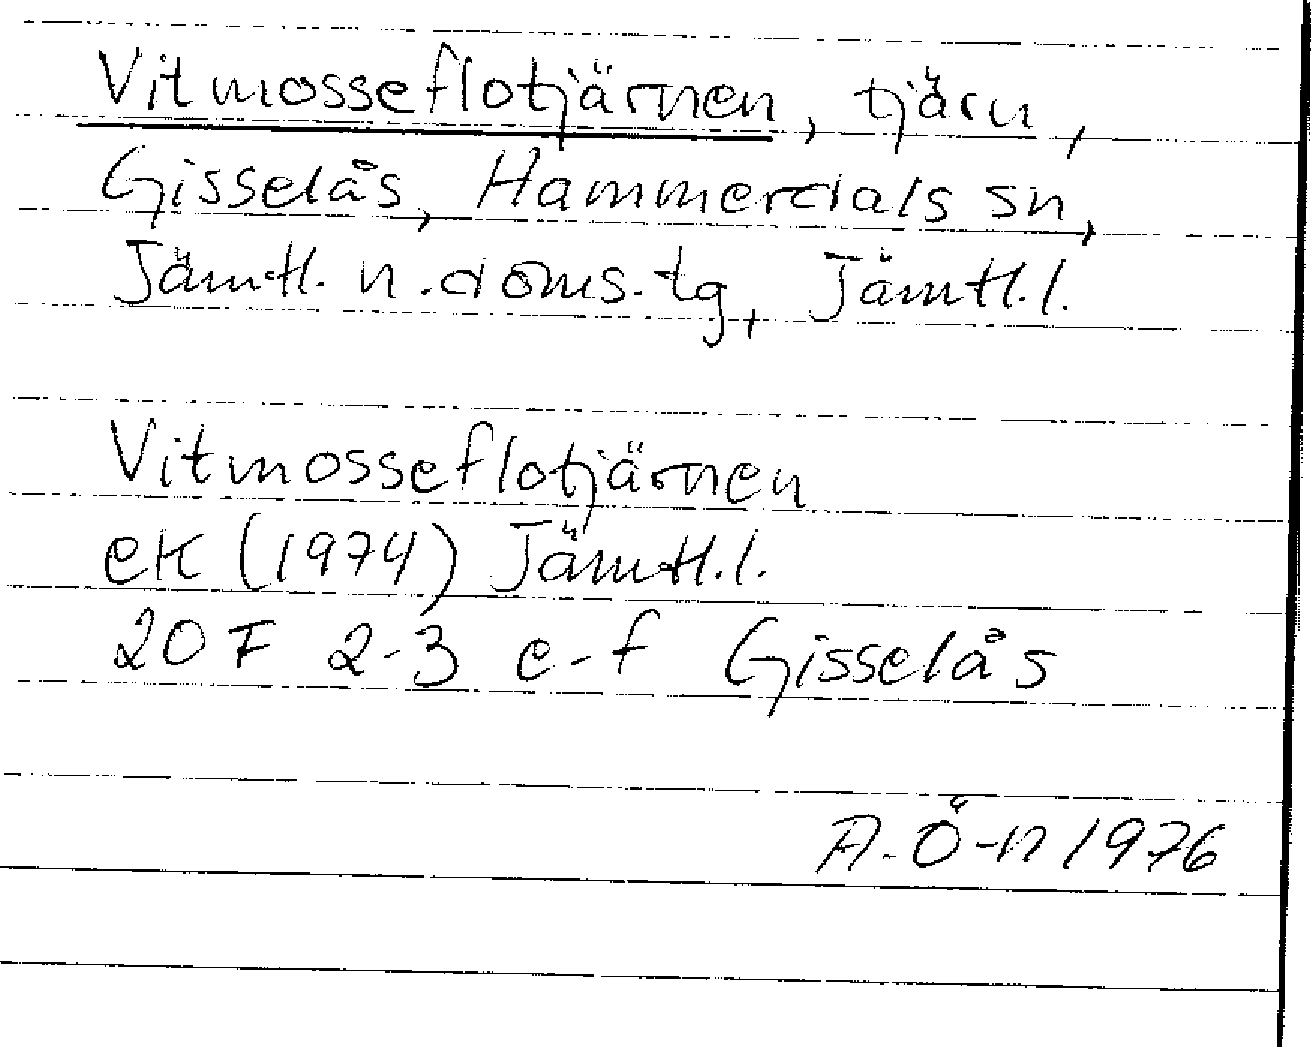 Vitmosseflotjärnen, tjärn,
Gisselås, Hammerdals sn,
Jämtl. n. doms. tg, Jämtl. l.
Vitmosseflotjärnen
ek (1974) Jämtl. l.
20 F 2-3 e-f Gisselås
A. Ö-n 1976